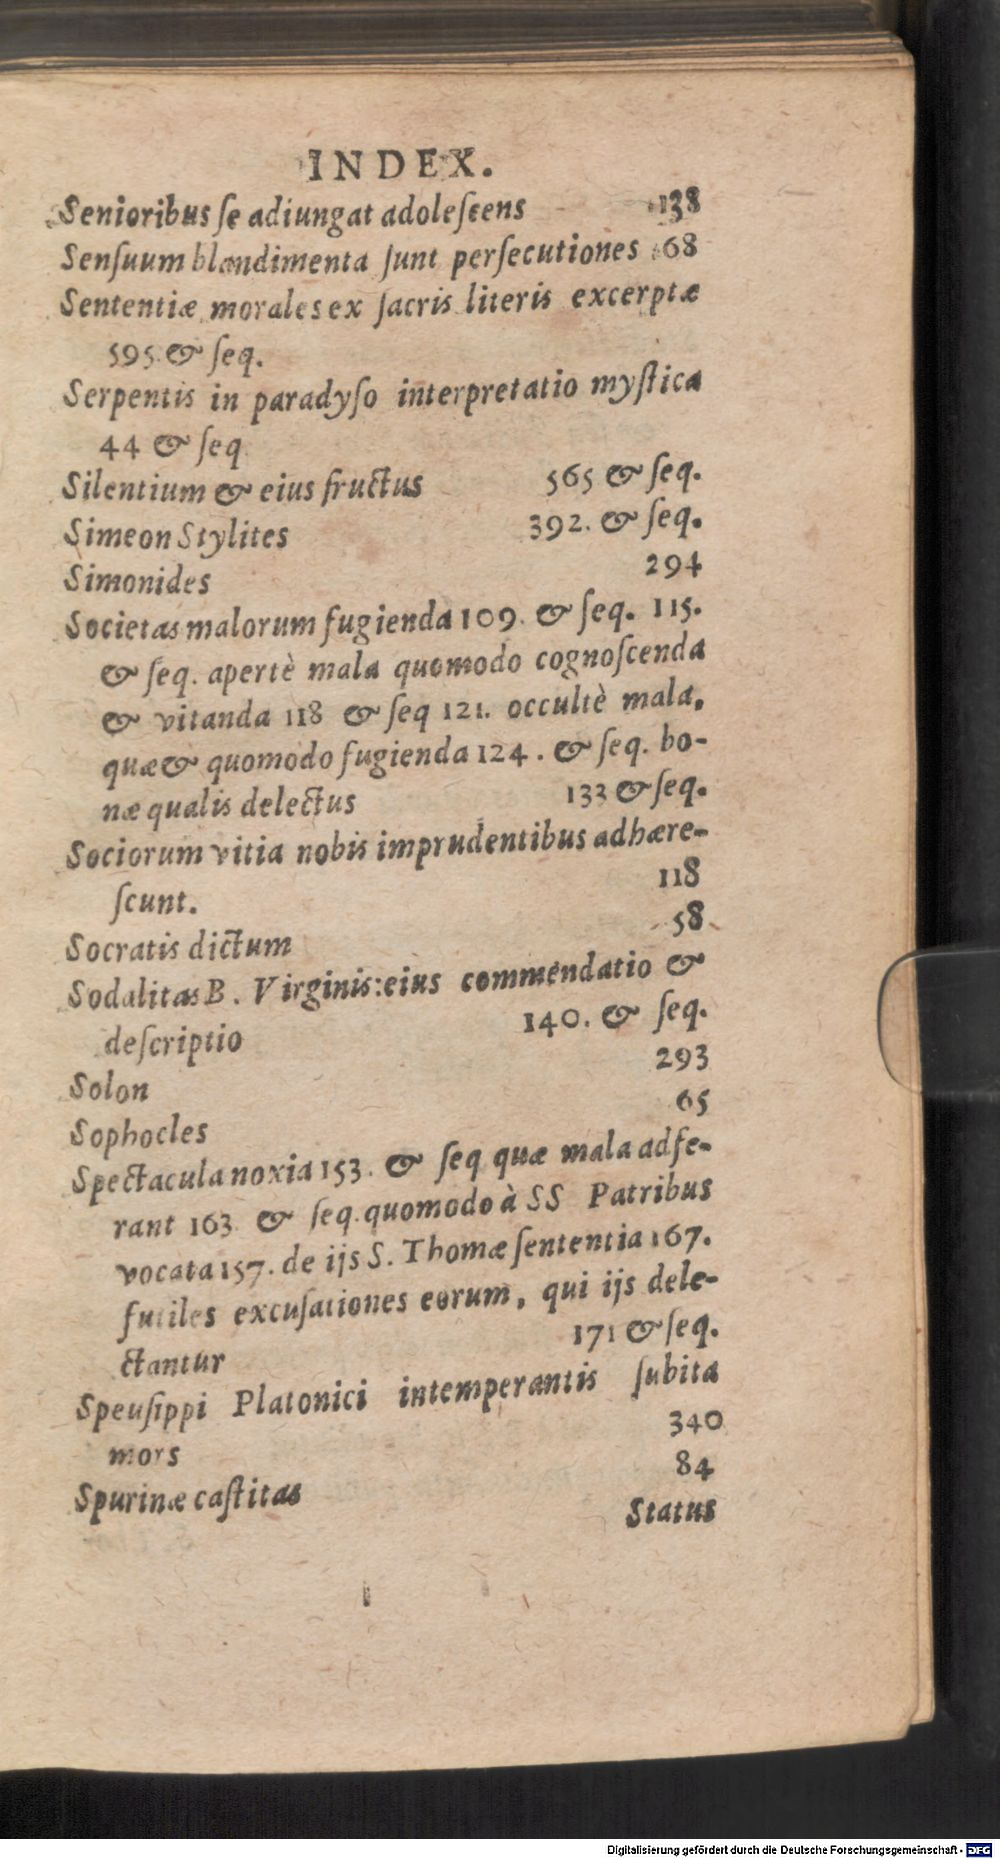 INDEX.
Senioribus ſe adiungat adoleſcens 138
Senſuum blandimenta ſunt perſecutiones 68
Sententiæ morales ex ſacris literis excerptæ
595 & ſeq.
Serpentis in paradyſo interpretatio myſtica
44 & ſeq
Silentium & eius fructus 565 & ſeq.
Simeon Stylites 392. & ſeq.
Simonides 294
Societas malorum fugienda 109. & ſeq. 115.
& ſeq. apertè mala quomodo cognoſcenda
& vitanda 118 & ſeq 121. occultè mala,
quæ & quomodo fugienda 124. & ſeq. bo-
næ qualis delectus 133 & ſeq.
Sociorum vitia nobis imprudentibus adhære-
ſcunt. 118
Socratis dictum 58
Sodalitas B. Virginis: eius commendatio &
deſcriptio 140. & ſeq.
Solon 293
Sophocles 65
Spectacula noxia 153. & ſeq quæ mala adfe-
rant 163 & ſeq. quomodo à SS Patribus
vocata 157. de ijs S. Thomæ ſententia 167.
futiles excuſationes eorum, qui ijs dele-
ctantur 171 & ſeq.
Speuſippi Platonici intemperantis ſubita
mors 340
Spurinæ caſtitas 84
Status
Digitalisierung gefördert durch die Deutsche Forschungsgemeinschaft - DFG